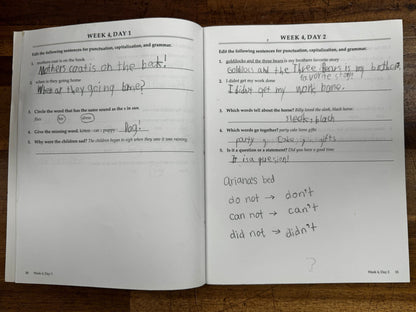 WEEK 4, DAY 1
Edit the following sentences for punctuation, capitalization, and grammar.
1. mothers coat is on the hook
Mothers coat is on the
2. when is they going home
are they going home?
3. Circle the word that has the same sound as the s in sun.
his
4. Give the missing word. kitten : cat :: puppy :
dog!
5. Why were the children sad? The children began to sigh when they saw it was raining.
88 Week 4, Day 1
WEEK 4, DAY 2
Edit the following sentences for punctuation, capitalization, and grammar.
1. goldilocks and the three bears is my brothers favorite story
and the Three Bears is my brothers
favorite story!
2. I didnt get my work done
I didnt get my work done.
3. Which words tell about the horse? Billy loved the sleek, black horse.
black
4. Which words go together? party cake lions gifts
party, cake, gifts
5. Is it a question or a statement? Did you have a good time
It is a question!
Ariana's bed
do not → don't
can not → can't
did not → didn't
?
Week 4, Day 2